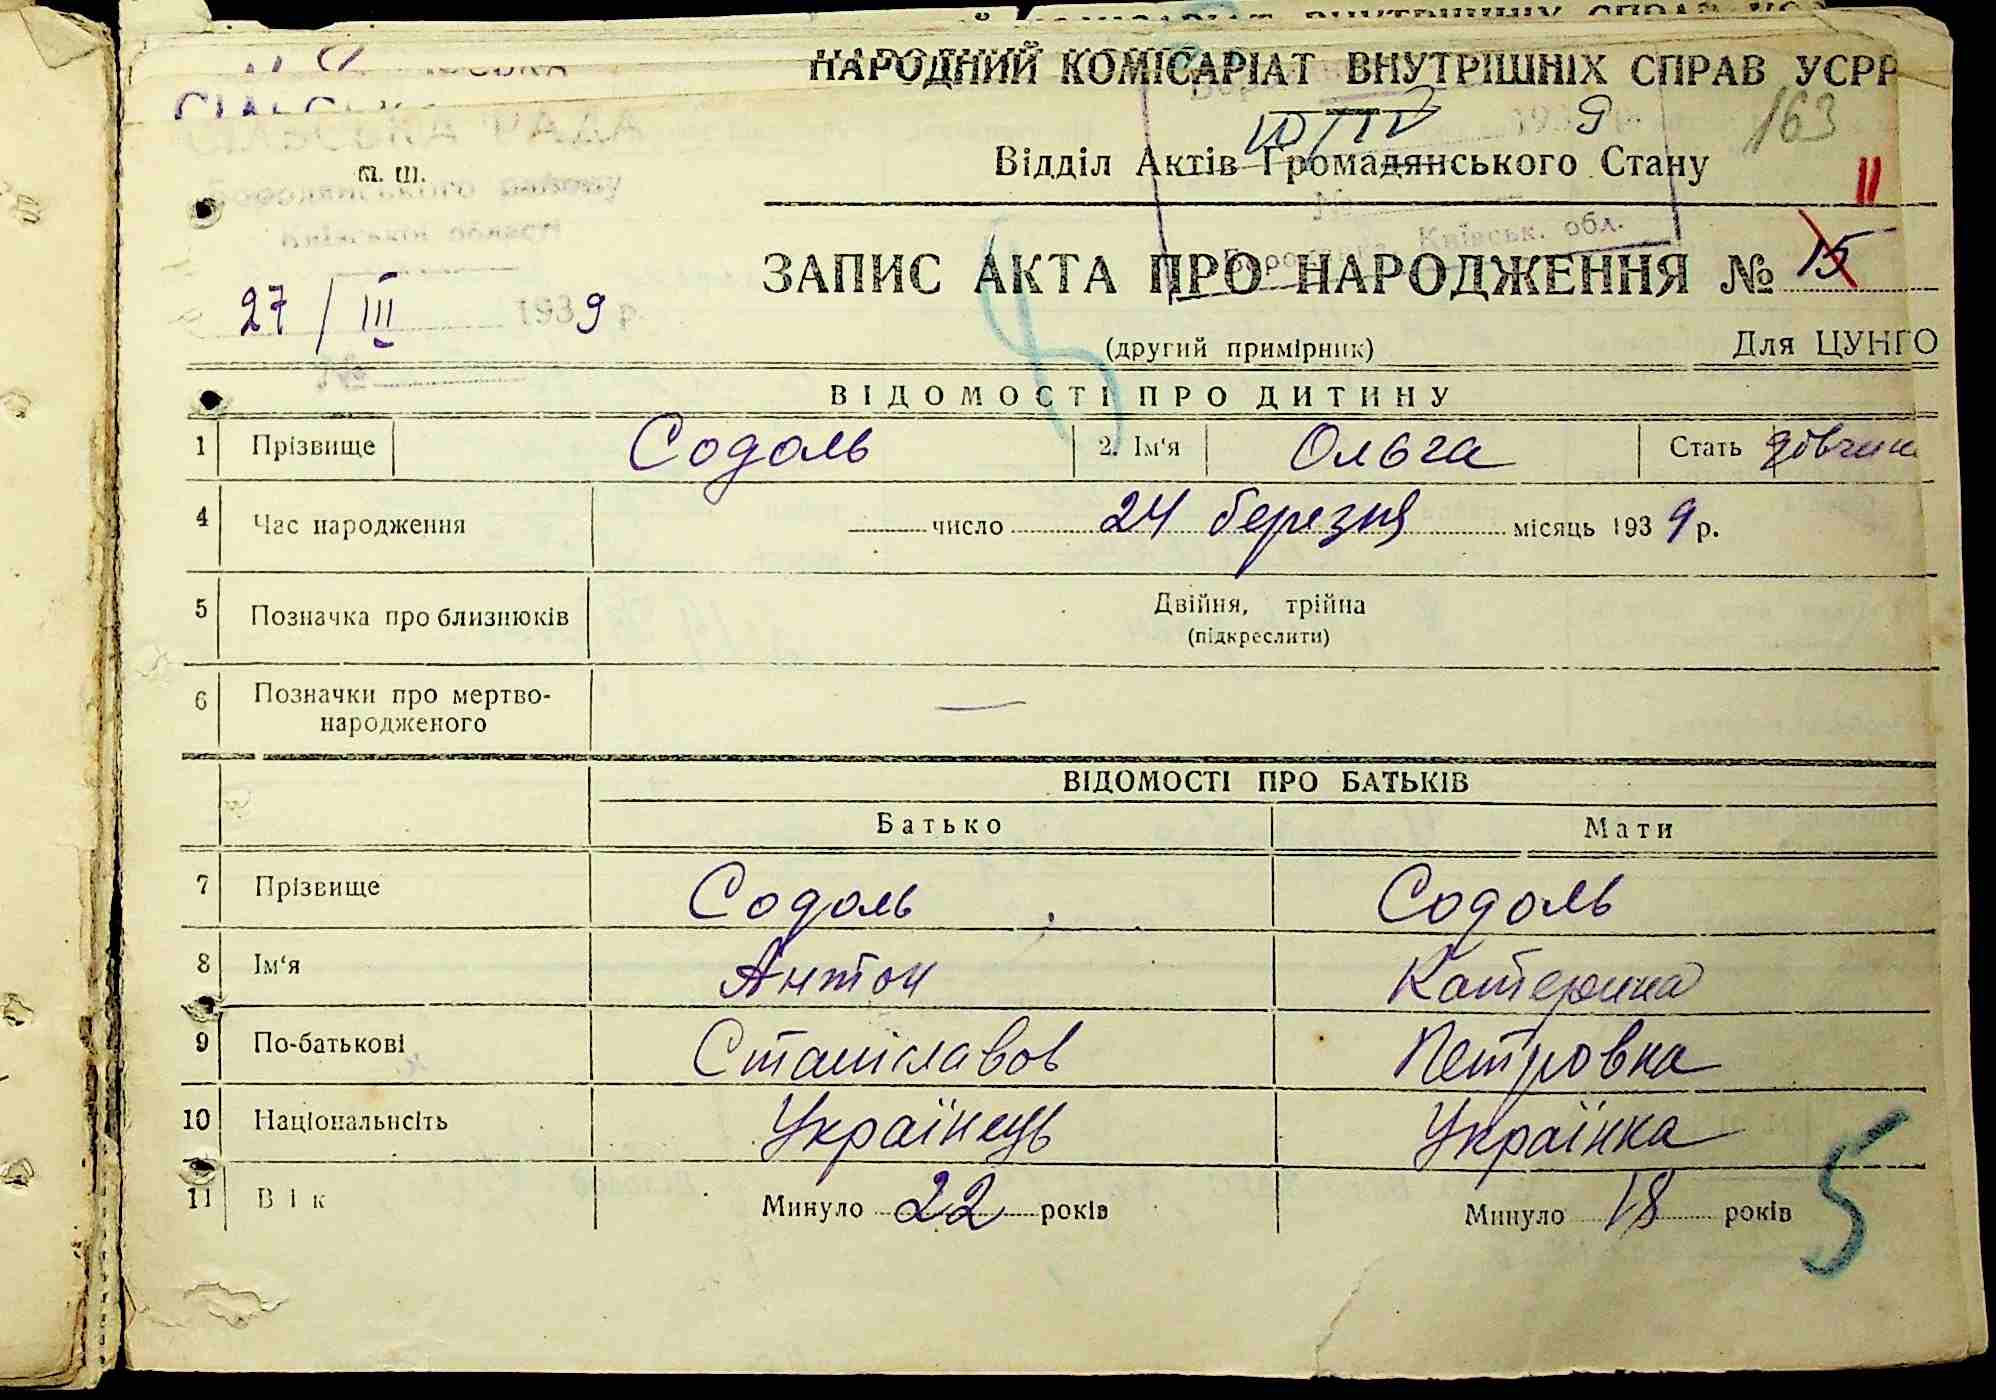 НАРОДНИЙ КОМІСАРІАТ ВНУТРІШНІХ СПРАВ УСРР
163
Відділ Актів Громадянського Стану
СІЛЬСЬКА РАДА
м. ш.
Бородянського району
Київської області
11
ЗАПИС АКТА ПРО НАРОДЖЕННЯ № 15
Бородянка, Київськ. обл.
27/III 1939 р.
№
(другий примірник) Для ЦУНГО
ВІДОМОСТІ ПРО ДИТИНУ
1 Прізвище Содоль 2. Ім'я Ольга Стать
4 Час народження число 24 березня місяць 1939 р.
5 Позначка про близнюків Двійня, трійна
(підкреслити)
6 Позначки про мертво-
народженого —
ВІДОМОСТІ ПРО БАТЬКІВ
Батько Мати
7 Прізвище Содоль Содоль
8 Ім'я Антон Катерина
9 По-батькові Станіславов Петровна
10 Національнсіть Українець Українка
11 Вік Минуло 22 років Минуло 18 років
5